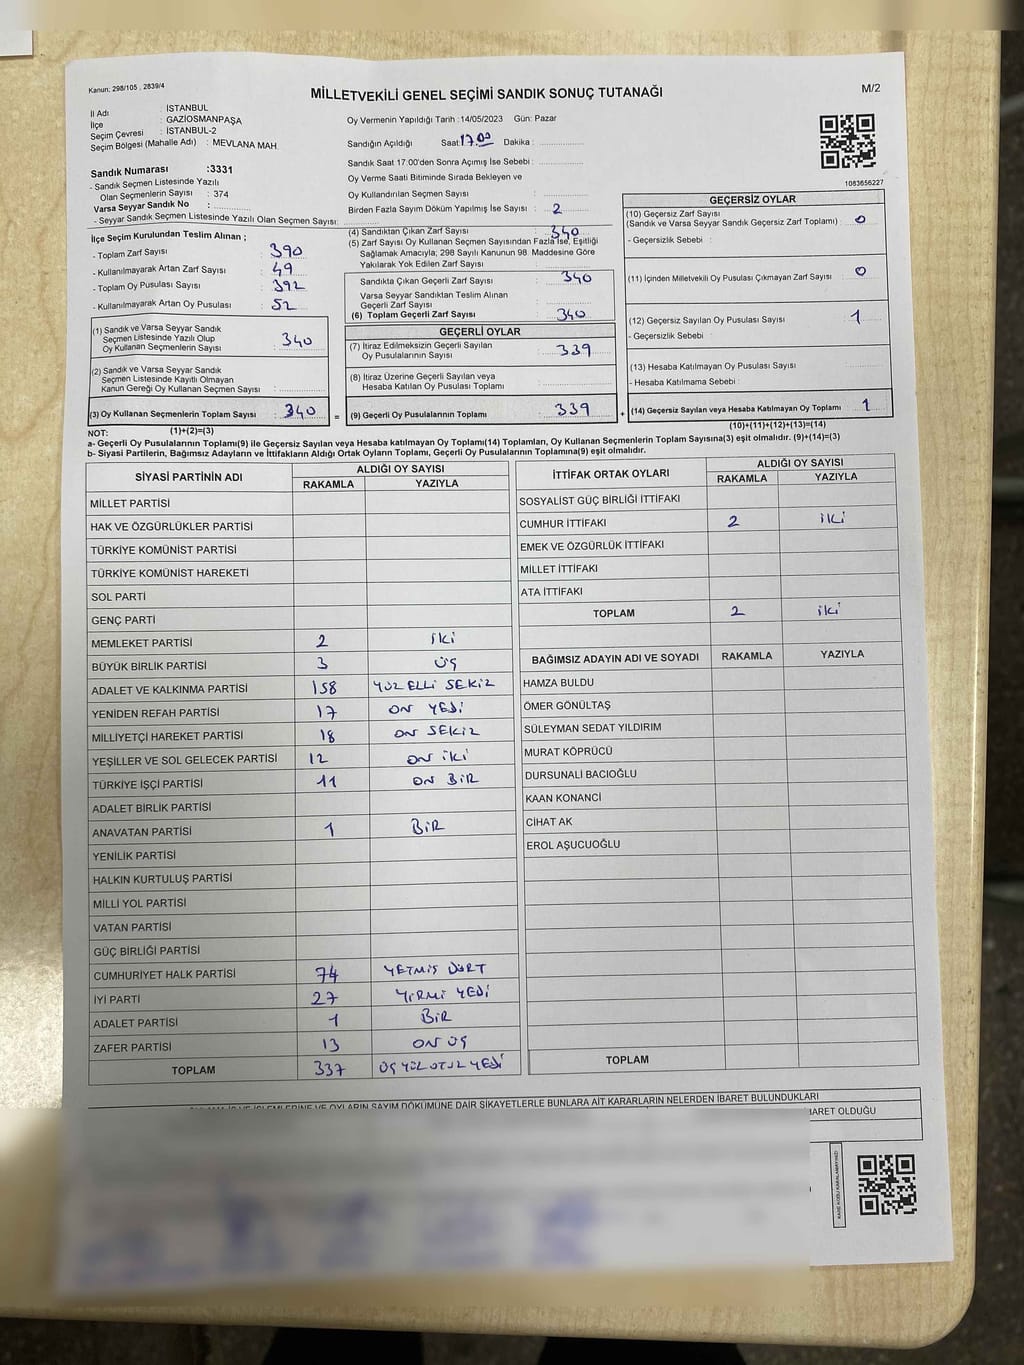 Kanun: 298/105 , 2839/4
MİLLETVEKİLİ GENEL SEÇİMİ SANDIK SONUÇ TUTANAĞI
M/2
İl Adı : İSTANBUL
İlçe : GAZİOSMANPAŞA
Seçim Çevresi : İSTANBUL-2
Seçim Bölgesi (Mahalle Adı) : MEVLANA MAH.
Oy Vermenin Yapıldığı Tarih :14/05/2023 Gün: Pazar
Sandığın Açıldığı Saat:17.00 Dakika :
Sandık Saat 17:00'den Sonra Açımış İse Sebebi :
Oy Verme Saati Bitiminde Sırada Bekleyen ve
Oy Kullandırılan Seçmen Sayısı :
Birden Fazla Sayım Döküm Yapılmış İse Sayısı : 2
1083656227
Sandık Numarası :3331
- Sandık Seçmen Listesinde Yazılı
Olan Seçmenlerin Sayısı : 374
Varsa Seyyar Sandık No :
- Seyyar Sandık Seçmen Listesinde Yazılı Olan Seçmen Sayısı:
İlçe Seçim Kurulundan Teslim Alınan ;
- Toplam Zarf Sayısı : 390
- Kullanılmayarak Artan Zarf Sayısı : 49
- Toplam Oy Pusulası Sayısı : 392
- Kullanılmayarak Artan Oy Pusulası : 52
(1) Sandık ve Varsa Seyyar Sandık
Seçmen Listesinde Yazılı Olup
Oy Kullanan Seçmenlerin Sayısı : 340
(2) Sandık ve Varsa Seyyar Sandık
Seçmen Listesinde Kayıtlı Olmayan
Kanun Gereği Oy Kullanan Seçmen Sayısı :
(3) Oy Kullanan Seçmenlerin Toplam Sayısı : 340
(1)+(2)=(3)
(4) Sandıktan Çıkan Zarf Sayısı : 340
(5) Zarf Sayısı Oy Kullanan Seçmen Sayısından Fazla İse, Eşitliği
Sağlamak Amacıyla; 298 Sayılı Kanunun 98. Maddesine Göre
Yakılarak Yok Edilen Zarf Sayısı :
Sandıkta Çıkan Geçerli Zarf Sayısı : 340
Varsa Seyyar Sandıktan Teslim Alınan
Geçerli Zarf Sayısı :
(6) Toplam Geçerli Zarf Sayısı : 340
GEÇERLİ OYLAR
(7) İtiraz Edilmeksizin Geçerli Sayılan
Oy Pusulalarının Sayısı : 339
(8) İtiraz Üzerine Geçerli Sayılan veya
Hesaba Katılan Oy Pusulası Toplamı :
= (9) Geçerli Oy Pusulalarının Toplamı : 339
GEÇERSİZ OYLAR
(10) Geçersiz Zarf Sayısı
(Sandık ve Varsa Seyyar Sandık Geçersiz Zarf Toplamı) : 0
- Geçersizlik Sebebi :
(11) İçinden Milletvekili Oy Pusulası Çıkmayan Zarf Sayısı : 0
(12) Geçersiz Sayılan Oy Pusulası Sayısı : 1
- Geçersizlik Sebebi :
(13) Hesaba Katılmayan Oy Pusulası Sayısı :
- Hesaba Katılmama Sebebi :
+ (14) Geçersiz Sayılan veya Hesaba Katılmayan Oy Toplamı : 1
(10)+(11)+(12)+(13)=(14)
NOT:
a- Geçerli Oy Pusulalarının Toplamı(9) ile Geçersiz Sayılan veya Hesaba katılmayan Oy Toplamı(14) Toplamları, Oy Kullanan Seçmenlerin Toplam Sayısına(3) eşit olmalıdır. (9)+(14)=(3)
b- Siyasi Partilerin, Bağımsız Adayların ve İttifakların Aldığı Ortak Oyların Toplamı, Geçerli Oy Pusulalarının Toplamına(9) eşit olmalıdır.
SİYASİ PARTİNİN ADI
ALDIĞI OY SAYISI
RAKAMLA YAZIYLA
MİLLET PARTİSİ
HAK VE ÖZGÜRLÜKLER PARTİSİ
TÜRKİYE KOMÜNİST PARTİSİ
TÜRKİYE KOMÜNİST HAREKETİ
SOL PARTİ
GENÇ PARTİ
MEMLEKET PARTİSİ 2 iki
BÜYÜK BİRLİK PARTİSİ 3 üç
ADALET VE KALKINMA PARTİSİ 158 YÜZ ELLİ SEKİZ
YENİDEN REFAH PARTİSİ 17 ON YEDİ
MİLLİYETÇİ HAREKET PARTİSİ 18 ON SEKİZ
YEŞİLLER VE SOL GELECEK PARTİSİ 12 ON iKi
TÜRKİYE İŞÇİ PARTİSİ 11 ON BİR
ADALET BİRLİK PARTİSİ
ANAVATAN PARTİSİ 1 BİR
YENİLİK PARTİSİ
HALKIN KURTULUŞ PARTİSİ
MİLLİ YOL PARTİSİ
VATAN PARTİSİ
GÜÇ BİRLİĞİ PARTİSİ
CUMHURİYET HALK PARTİSİ 74 YETMİŞ DÖRT
İYİ PARTİ 27 YİRMİ YEDİ
ADALET PARTİSİ 1 BİR
ZAFER PARTİSİ 13 ON ÜÇ
TOPLAM 337 ÜÇ YÜZ OTUZ YEDİ
İTTİFAK ORTAK OYLARI
ALDIĞI OY SAYISI
RAKAMLA YAZIYLA
SOSYALİST GÜÇ BİRLİĞİ İTTİFAKI
CUMHUR İTTİFAKI 2 iki
EMEK VE ÖZGÜRLÜK İTTİFAKI
MİLLET İTTİFAKI
ATA İTTİFAKI
TOPLAM 2 iki
BAĞIMSIZ ADAYIN ADI VE SOYADI RAKAMLA YAZIYLA
HAMZA BULDU
ÖMER GÖNÜLTAŞ
SÜLEYMAN SEDAT YILDIRIM
MURAT KÖPRÜCÜ
DURSUNALİ BACIOĞLU
KAAN KONANCİ
CİHAT AK
EROL AŞUCUOĞLU
TOPLAM
İŞLEMLERİNE VE OYLARIN SAYIM DÖKÜMÜNE DAİR ŞİKAYETLERLE BUNLARA AİT KARARLARIN NELERDEN İBARET BULUNDUKLARI
İBARET OLDUĞU